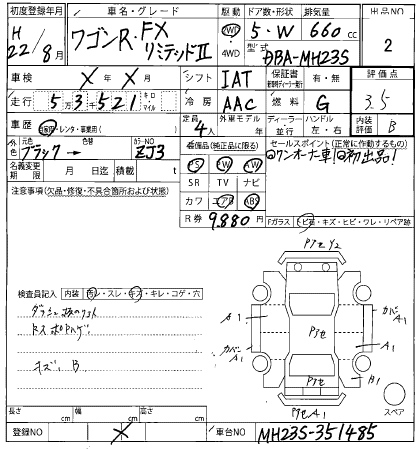 初度登録年月 車名・グレード 駆動 ドア数・形状 排気量 出品NO
H 22/8月 ワゴンR・FX リミテッドⅡ 2WD 4WD 5・W 660cc 2
型式 DBA-MH23S
車検 X年 X月 シフト IAT 保証書 有・無 評価点
走行 5万3千521 キロ マイル 冷房 AAC 燃料 G 3.5
車歴 自家用・レンタ・事業用( ) 定員 4人 外車モデル 年 ディーラー 並行 ハンドル 左・右 内装評価 B
外色 元色 ブラック→ 色替 カラーNO ZJ3 装備品(純正品に限る) セールスポイント(正常に作動するもの)
◎ワンオーナー車!◎初出品!
名義変更期限 月 日迄 積載 t PS PW AW
注意事項(欠品・修復・不具合箇所および状態) SR TV ナビ
カワ エアB ABS
R券 9,880円 Fガラス トビ石・キズ・ヒビ・ワレ・リペア跡
検査員記入 内装 汚レ・スレ・キズ・キレ・コゲ・穴
キズ、B
A1
A1
B1
スペア
長さ cm 幅 cm 高さ cm
登録NO X 車台NO MH23S-351485